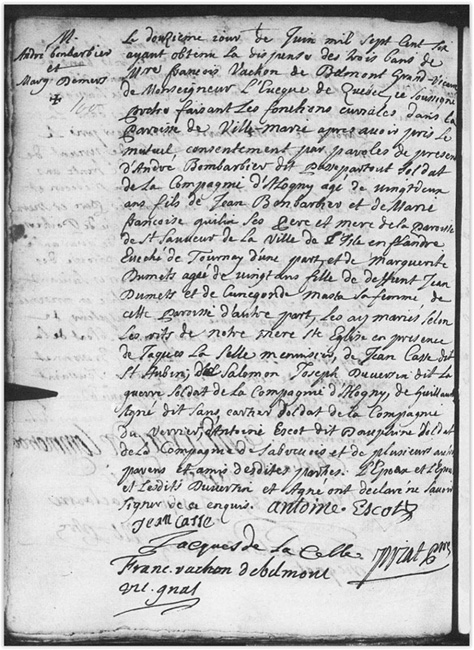 M.
André bombarbier
et
Marg. Demers
Le douzieme jour de Juin mil sept cent six
ayant obtenu la dispense des trois bans de
Mre françois Vachon de Belmont Grand Vicaire
de Monseigneur L'Eveque de Quebec je soussigné
Pretre faisant Les fonctions curiales dans la
Paroisse de Ville-marie apres avoir pris le
mutuel consentement par paroles de present
d'André Bombarbier dit Passepartout soldat
de La Compagnie d'Alogny agé de vingt deux
ans fils de Jean Bombarbier et de Marie
françoise ses pere et mere de la Paroisse
de St Sauveur de La Ville de L'Isle en flandre
Eveché de Tournay d'une part, et de Marguerite
Dumets agée de vingt ans fille de deffunt Jean
Dumets et de Cunegonde masta sa femme de
cette Paroisse d'autre part, Les ay mariés selon
Les rits de notre mere Ste Eglise en presence
de Jaques La Selle menuisier, de Jean Casse dit
St Aubin, de Salomon Joseph Duvertin dit la
guerre soldat de la Compagnie d'Alogny, de Guillaume
Agné dit sans cartier soldat de la Compagnie
du Verrier, d'Antoine Escot dit Dauphiné soldat
de La Compagnie de et de plusieurs autres
parens et amis desdites parties. L'Epoux et L'Epouse
et Lesdits Duvertin et Agné ont declaré ne savoir
signer de ce enquis. antoine Escot
Jean Casse
Jacques de la Celle
priat
Franc. vachon de belmont
vic. gnal